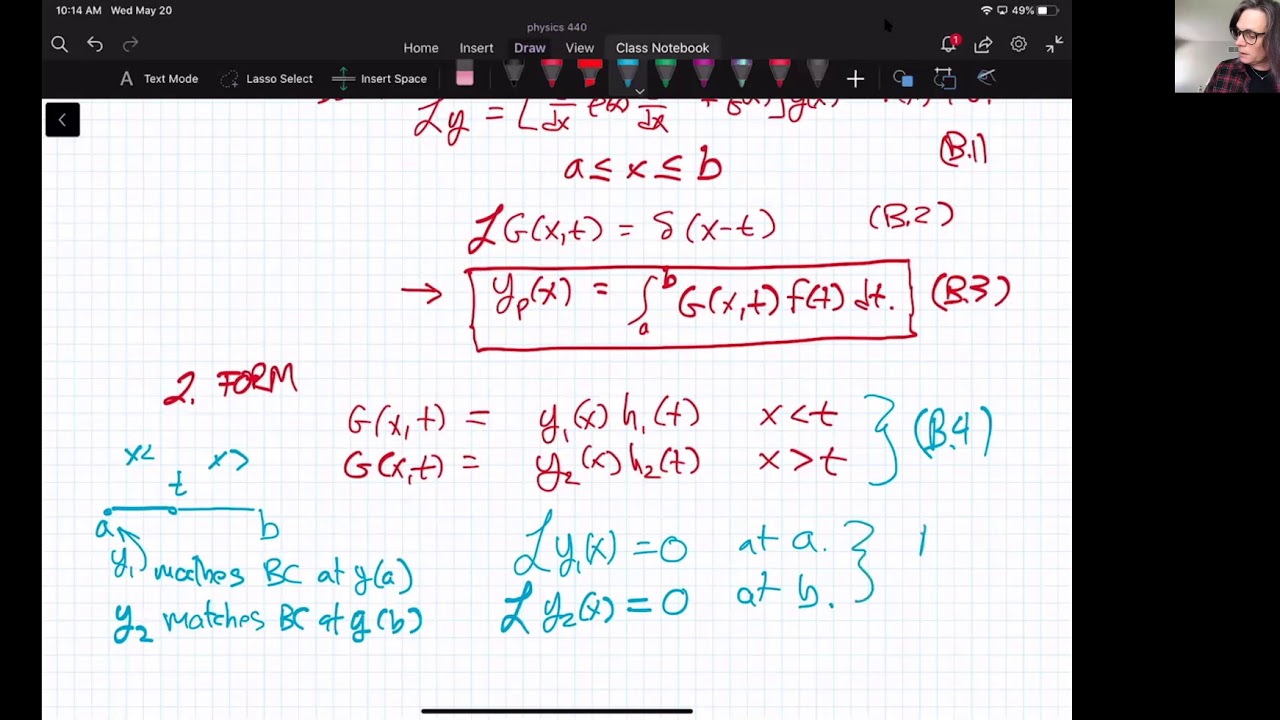 10:14 AM Wed May 20
49%
physics 440
Home Insert Draw View Class Notebook
1
A Text Mode Lasso Select Insert Space
ℒy = [d/dx p(x) d/dx + q(x)] y(x)
(B.1)
a ≤ x ≤ b
ℒG(x,t) = δ(x-t) (B.2)
→ yₚ(x) = ∫ₐᵇ G(x,t) f(t) dt. (B.3)
2. FORM
G(x,t) = y₁(x) h₁(t) x<t
G(x,t) = y₂(x) h₂(t) x>t } (B.4)
x< x>
t
a b
y₁ matches BC at y(a)
y₂ matches BC at y(b)
ℒy₁(x) = 0 at a.
ℒy₂(x) = 0 at b. }